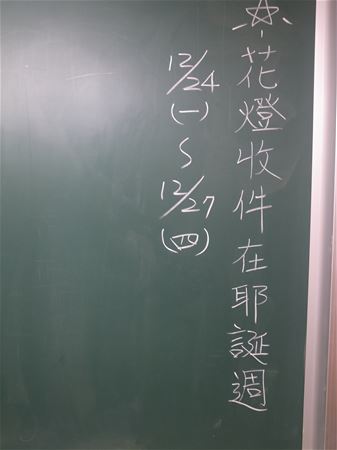 ☆花燈收件在耶誕週
12/24(一)~12/27(四)